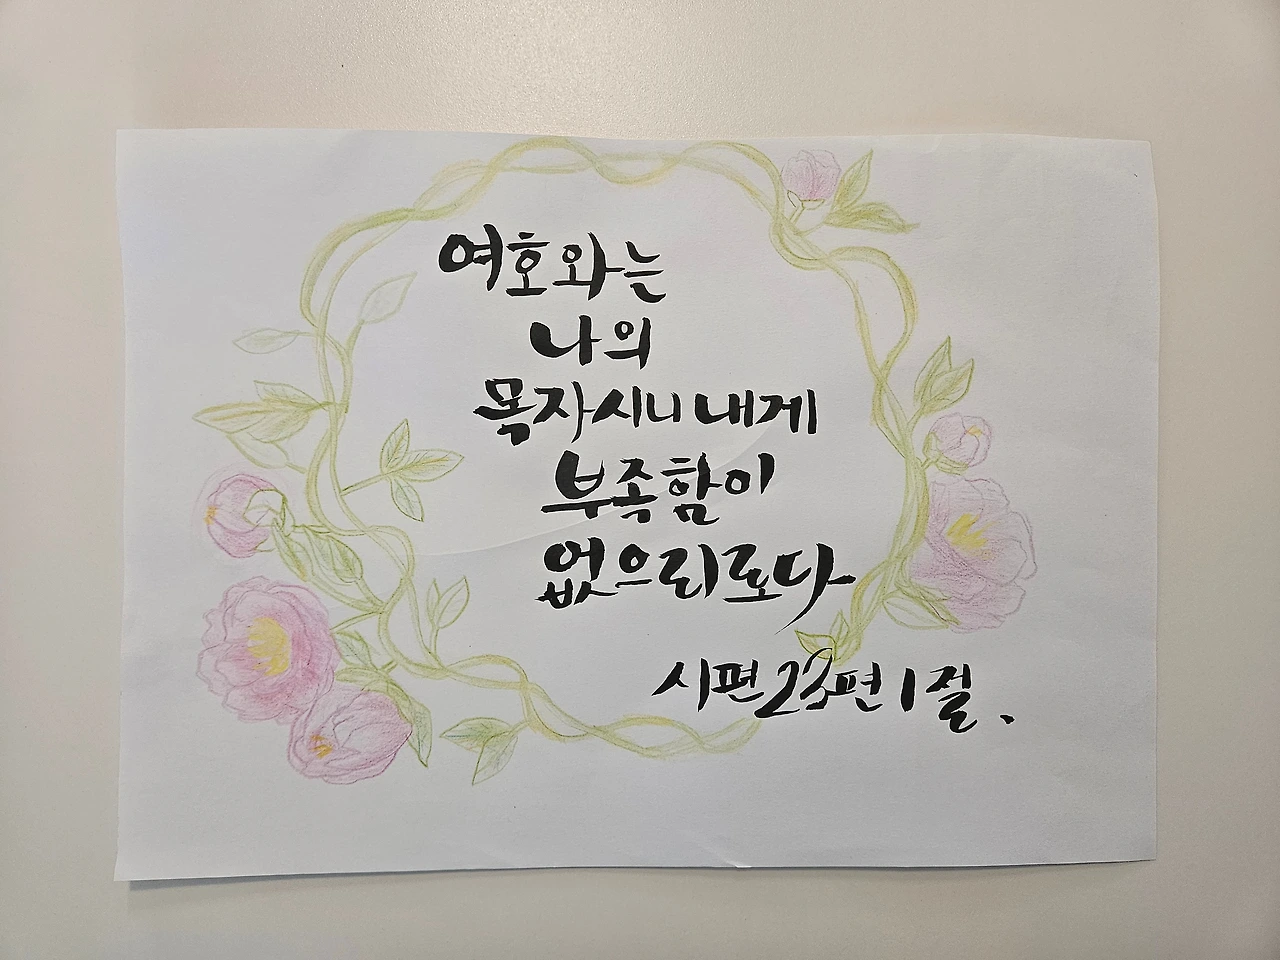 여호와는
나의
목자시니 내게
부족함이
없으리로다
시편 23편 1절.